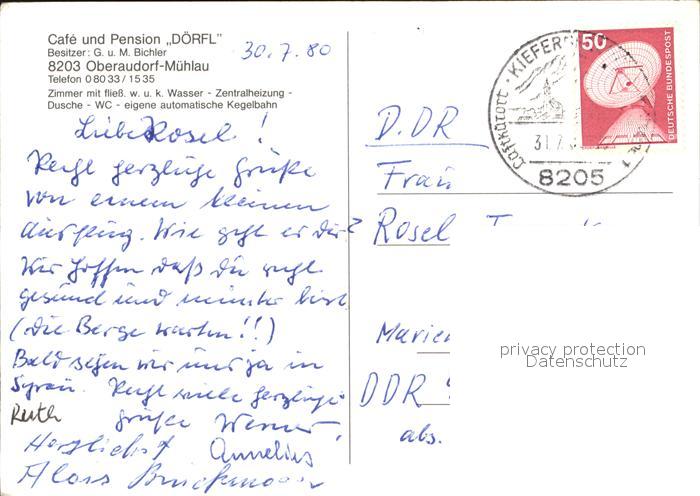 Café und Pension „DÖRFL"
Besitzer: G. u. M. Bichler
8203 Oberaudorf-Mühlau
Telefon 0 80 33 / 15 35
Zimmer mit fließ. w. u. k. Wasser - Zentralheizung -
Dusche - WC - eigene automatische Kegelbahn
30.7.80
Liebe Rosel!
Recht herzliche Grüße
von einem kleinen
Ausflug. Wie geht es dir?
Wir hoffen daß du recht
gesund und munter bist
(die Berge warten!!)
Bald sehen wir uns ja in
Recht viele herzliche
Ruth Grüße Werner,
Herzlichst Annelies
Alois
D.DR
Frau
Rosel
Marien
DDR
abs.
50
DEUTSCHE BUNDESPOST
Luftkurort KIEFERS
31.7.
8205
privacy protection
Datenschutz